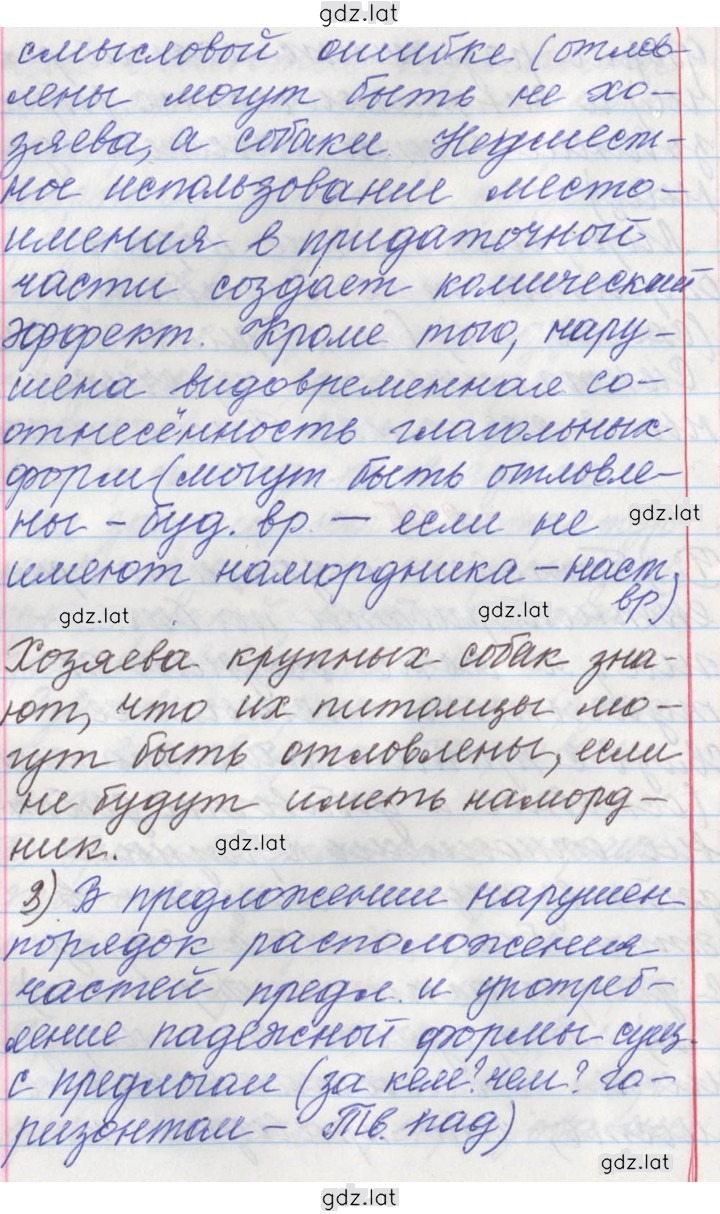 gdz.lat
смысловой ошибке (отлов-
лены могут быть не хо-
зяева, а собаки. Неумест-
ное использование место-
имения в придаточной
части создает комический
эффект. Кроме того, нару-
шена видовременная со-
отнесённость глагольных
форм (могут быть отловле-
ны - буд. вр – если не
gdz.lat
имеют намордника – наст.
вр)
gdz.lat
gdz.lat
Хозяева крупных собак зна-
ют, что их питомцы мо-
гут быть отловлены, если
не будут иметь наморд-
ник.
gdz.lat
3) В предложении нарушен
порядок расположения
частей предл. и употреб-
ление падежной формы сущ.
с предлогам (за кем? чем? го-
ризонтом – Тв. пад)
gdz.lat
gdz.lat